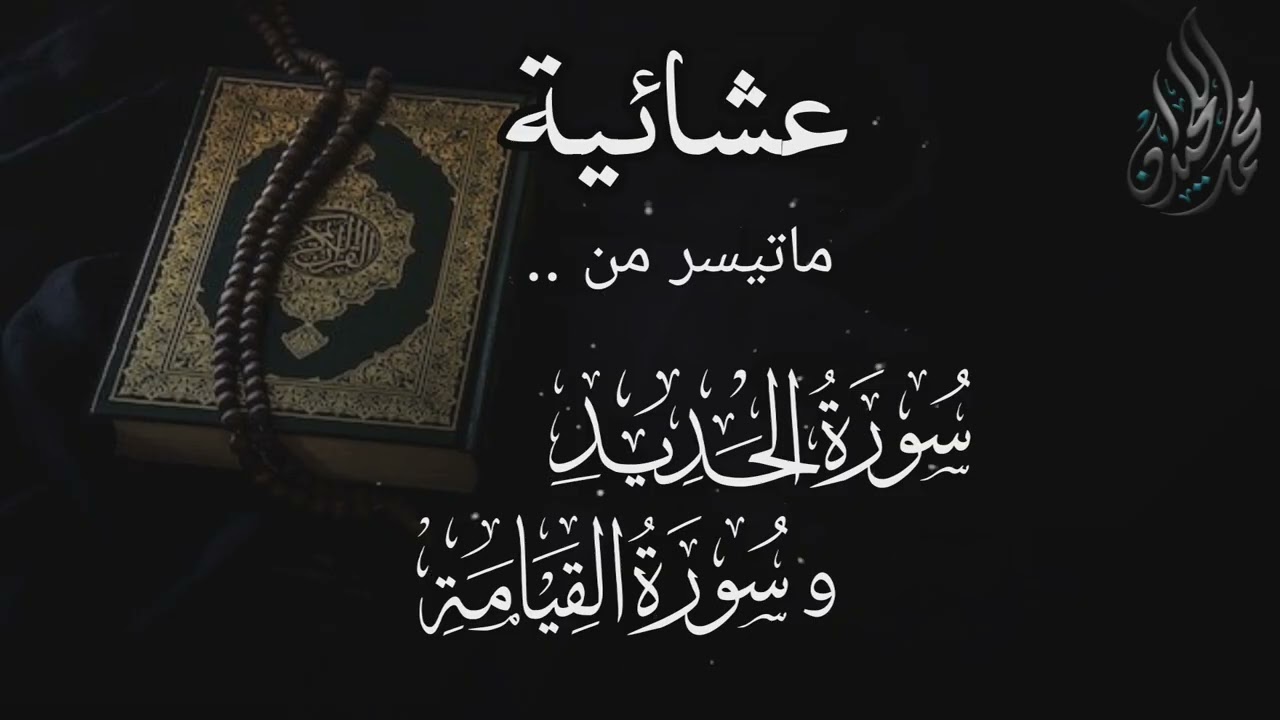 عشائية
ماتيسر من ..
سُورَةُ الحَدِيدِ
و سُورَةُ القِيَامَةِ
محمد اللحيدان
القرآن الكريم